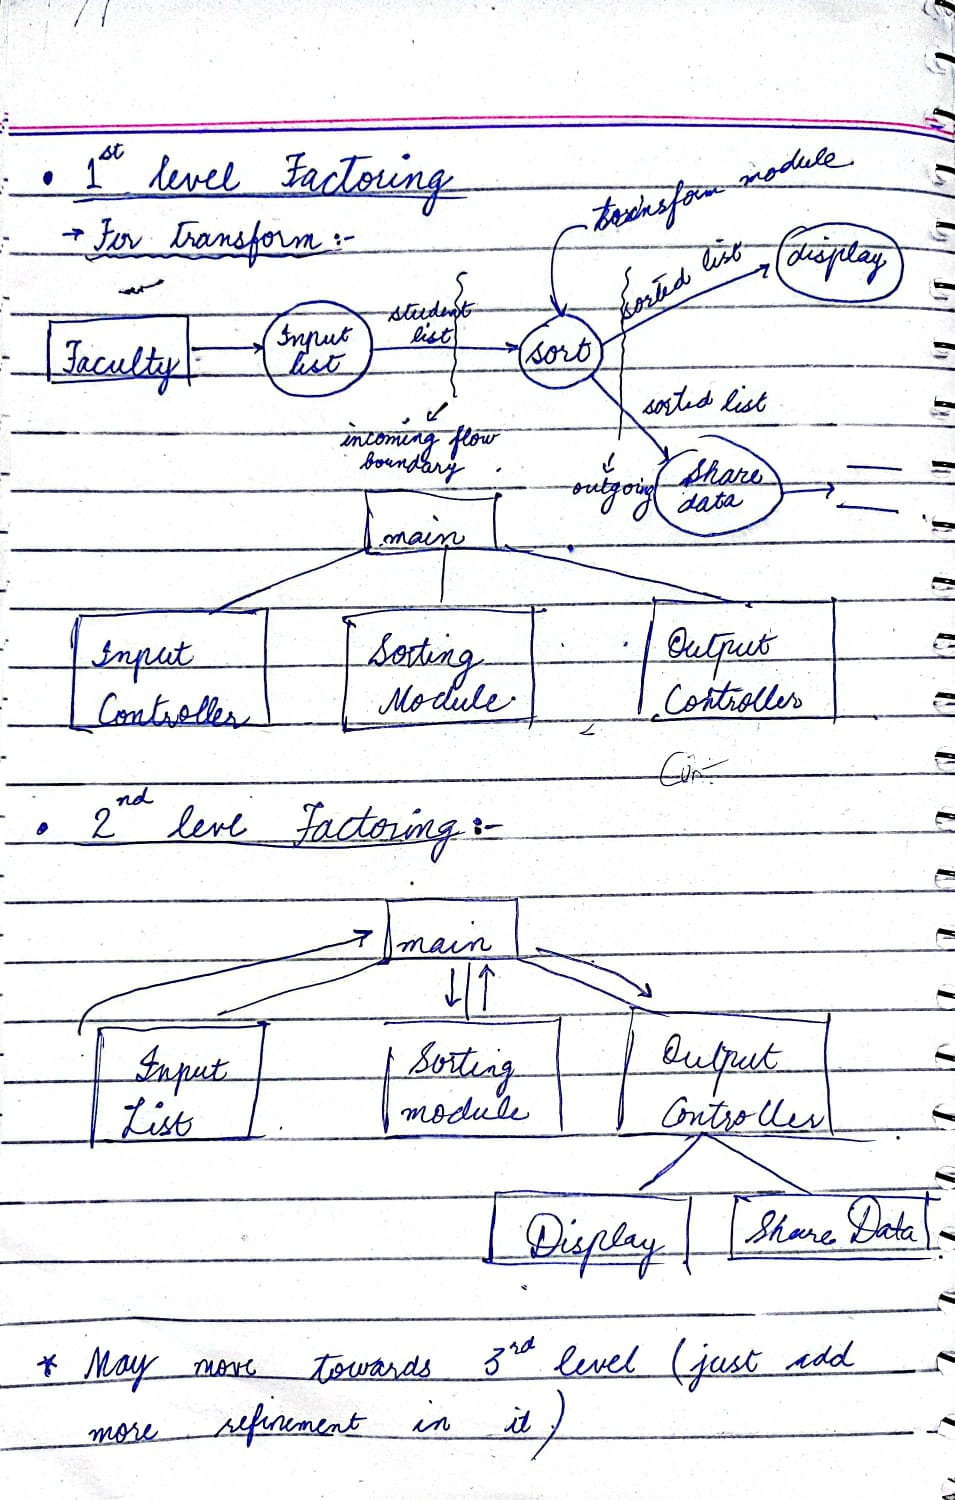 • 1st level Factoring
→ For transform :-
transform module
Faculty
Input
list
student
list
sort
sorted list
display
sorted list
incoming flow
boundary
outgoing
Share
data
main
Input
Controller
Sorting
Module
Output
Controller
• 2nd leve Factoring :-
main
Input
List
Sorting
module
Output
Controller
Display
Share Data
* May move towards 3rd level (just add
more refinement in it)